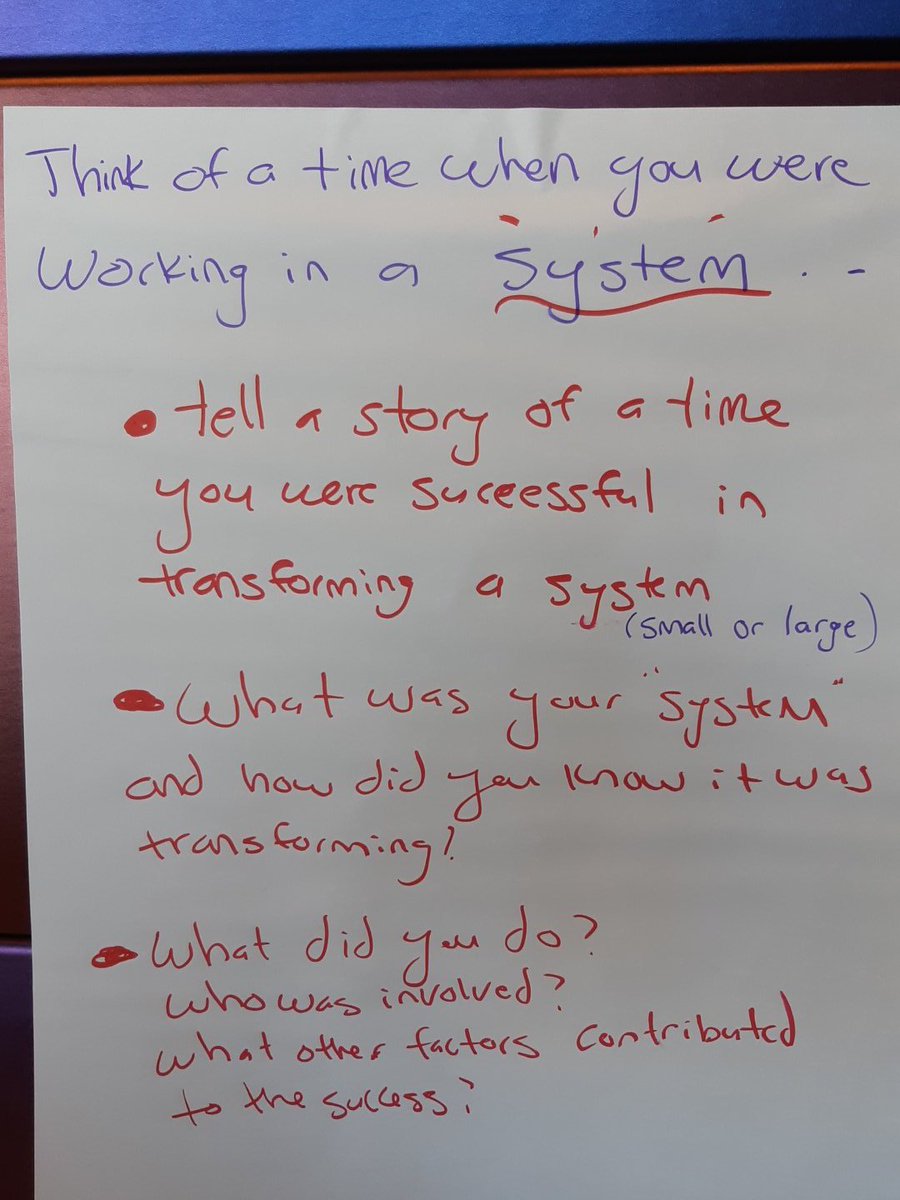 Think of a time when you were
working in a system . . -
• tell a story of a time
you were successful in
transforming a system
(small or large)
• What was your "system"
and how did you know it was
transforming?
• What did you do?
who was involved?
what other factors contributed
to the success?